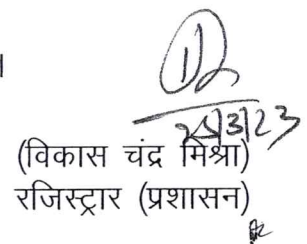 25/3/23
(विकास चंद्र मिश्रा)
रजिस्ट्रार (प्रशासन)